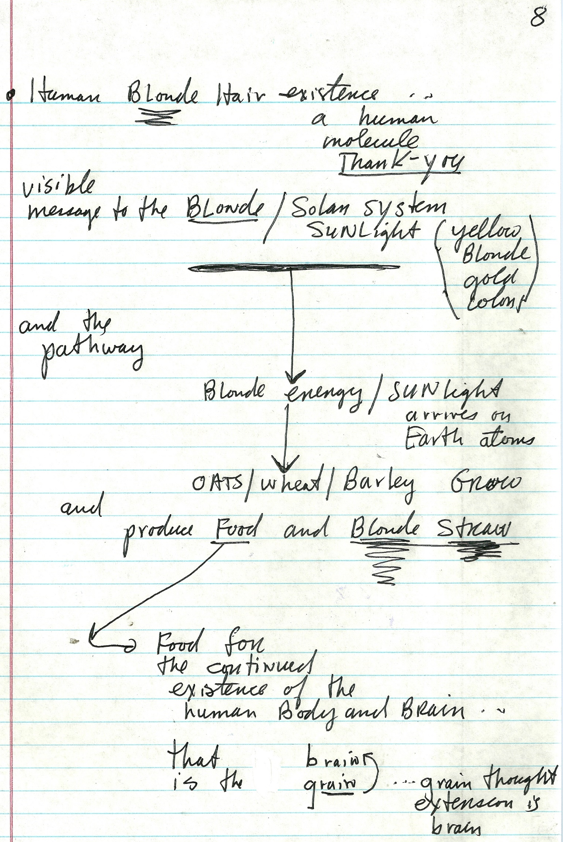 8
• Human Blonde Hair existence ..
a human
molecule
Thank-you
visible
message to the Blonde / Solar system
SUNLight (yellow
Blonde
gold
colors)
and the
pathway
Blonde energy / SUNlight
arrives on
Earth atoms
OATS / wheat / Barley Grow
and
produce Food and Blonde Straw
Food for
the continued
existence of the
human Body and BRAIN ..
that brain
is the grain) ... grain thought
extension is
brain